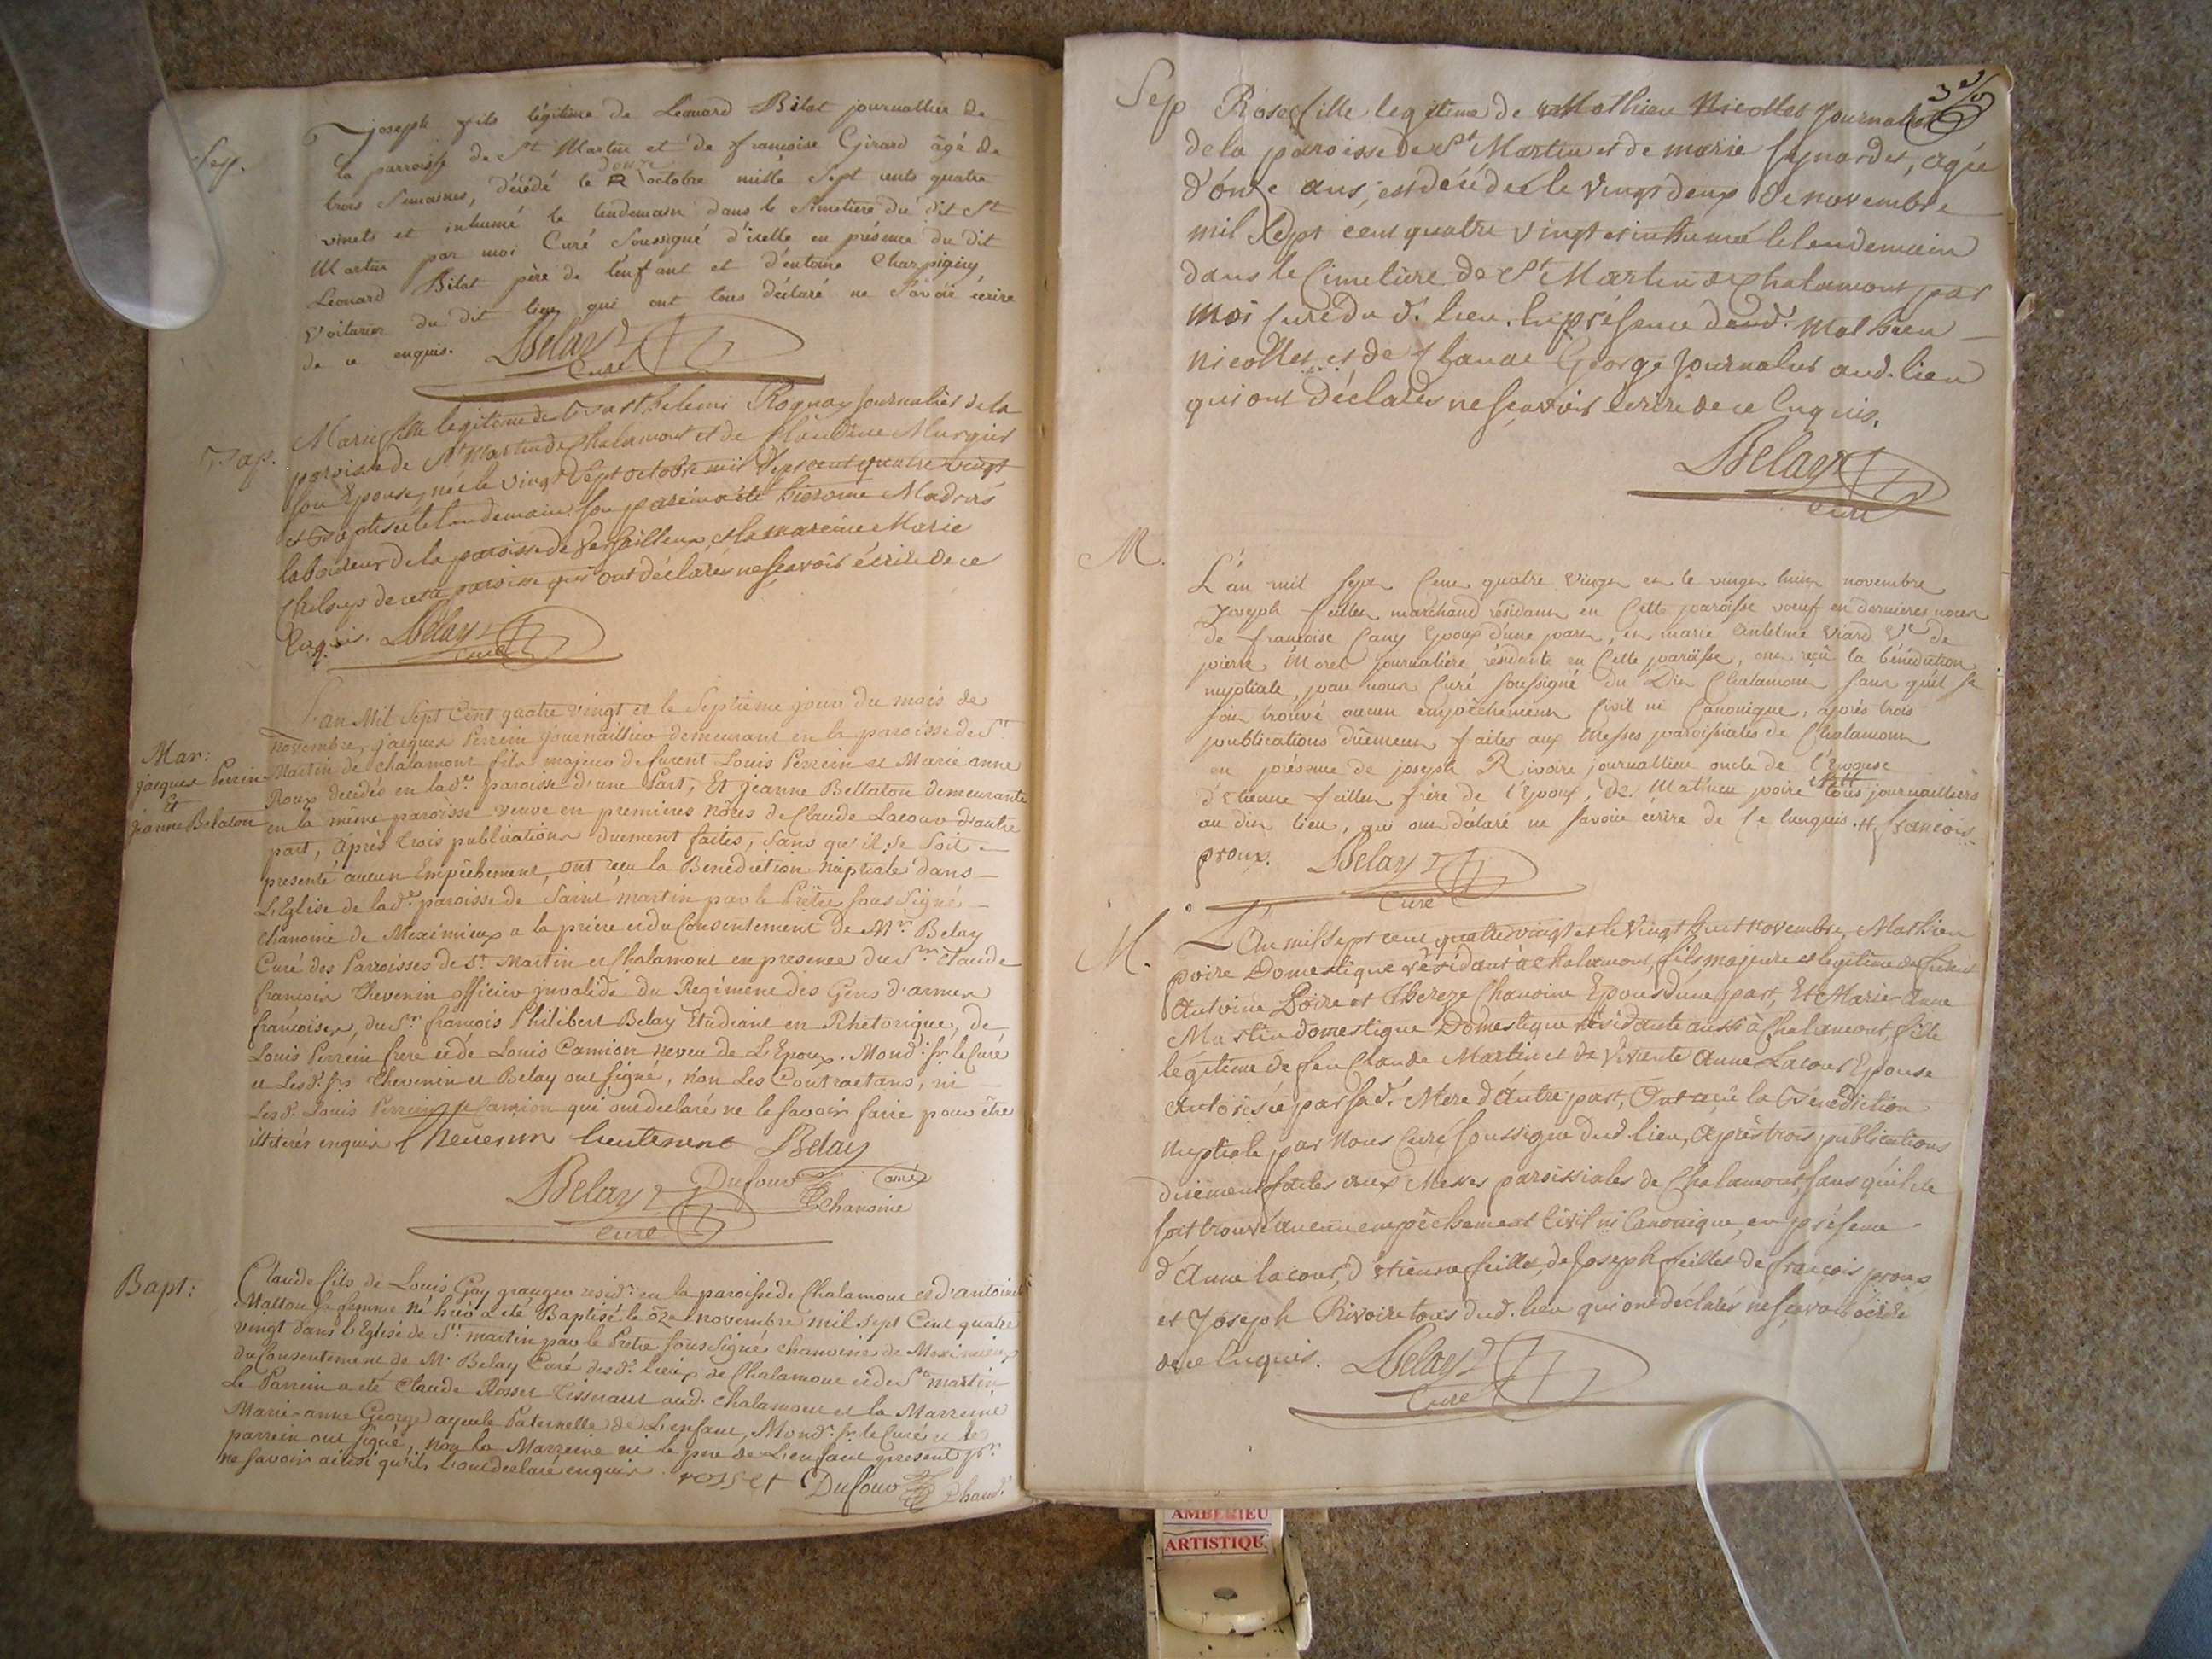 Sep.
joseph fils légitime de Léonard Bilat journallier de
la parroisse de St Martin et de francoise Girard âgé de
trois semaines, décédé le douze octobre mille sept cents quatre
vinets et inhumé le lendemain dans le simetiere du dit St
Martin par moi Curé soussigné d'icelle en présence du dit
Léonard Bilat père de l'enfant et d'entoine Charpigny
voiturier du dit lieu qui ont tous déclaré ne savoir écrire
de ce enquis. Belay
Curé
Bap.
Marie fille legitime de Barthelemi Rognay journalier de la
paroisse de St Martin de Chalamont et de Claudine Murgier
son Epouse, née le vingt sept octobre mil sept cent quatre vingt
et Baptisée le lendemain, son parein a été hierome
laboureur de la paroisse de Versailleux, et la mareine Marie
de cette paroisse qui ont déclarés ne sçavoir écrire de ce
Enquis. Belay
curé
Mar:
jacques Perrin
Et
jeanne Belaton
L'an Mil Sept Cent quatre vingt et le Septieme jour du mois de
novembre, jacques Perrein journaillier demeurant en la paroisse de St
Martin de chalamont fils majeur de furent Louis Perrein et Marie anne
Roux decédés en lade paroisse d'une Part, Et jeanne Bellaton demeurante
en la même paroisse veuve en premieres nôces de Claude Lacour d'autre
part, après trois publications duement faites, sans qu'il se soit
presenté aucun Empêchement, ont reçu la Benediction nuptiale dans
L'Eglise de lade paroisse de Saint martin par le Prêtre sous Signé
Chanoine de Meximieux a la priere et du Consentement de Mr. Belay
Curé des Parroisses de St. Martin et Chalamont en presence du Sr. Claude
françois Thevenin officier invalide du Regiment des Gens d'armes
françoises, du Sr. françois Philibert Belay Etudiant en Rhétorique, de
Louis Perrein frere et de Louis Camion neveu de L'Epoux. Mond. sr. le Curé
et Lesd. srs Thevenin et Belay ont signé, non Les Contractans, ni
Lesd. Louis Perrein et Camion qui ont declaré ne le savoir faire pour être
illiterés enquis Thevenin lieutenent Belay
Dufour
Belay Chanoine
curé
Bapt:
Claude fils de Louis Gay granger resid. en la paroisse de Chalamont et d'antoinette
Matton sa femme né hier a été Baptisé le õze novembre mil sept Cent quatre
vingt dans l'Eglise de St. martin par le Prêtre sous Signé chanoine de Meximieux
du Consentement de Mr Belay Curé desd. Lieux de Chalamont et de St martin
Le Parrein a été Claude Rosset Tisserant aud. Chalamont et la Marreine
Marie-anne George ayeule Paternelle de L'enfant, Mond. sr. le Curé et le
parrein ont signé, non la Marreine ni le pere de L'enfant present pr.
ne savoir ainsi qu'ils l'ont declaré enquis. rosset Dufour Chan.
Sep
Rose fille legitime de Mathieu Nicollet journalier
de la paroisse de St Martin et de marie Synardet, agée
d'onze ans, est décédée le vingt deux de novembre
mil sept cent quatre vingt et inhumé le lendemain
dans le Cimetière de St Martin de Chalamont par
moi curé du d. lieu. En présence dud. Mathieu
Nicollet et de Claude George journalier aud. lieu
qui ont déclarés ne sçavoir écrire de ce Enquis.
Belay
Curé
M.
L'an mil sept Cent quatre vingt et le vingt huit novembre
Joseph feillet marchand résidant en Cette paroisse voeuf en dernieres noces
de francoise Cany Epoux d'une part, et marie Antelme viard Ve de
pierre Morel journaliere résidente en Cette paroisse, ont reçu la bénédiction
nuptiale, par nous Curé soussigné du Dit Chalamont sans qu'il se
soit trouvé aucun empêchement Civil ni Canonique, après trois
publications duement faites aux Messes paroissiales de Chalamont
en présence de joseph Rivoire journallier oncle de l'Epouse
d'Etienne feillet frère de l'Epoux, de Mathieu poire tous journailliers
au dit lieu, qui ont déclaré ne savoir écrire de Ce Enquis. # françois
proux. Belay
Curé
M.
L'An mil sept cent quatre vingt et le vingt huit novembre, Mathieu
poire Domestique résidant à Chalamont, fils majeure et legitime de
Antoine Poire et Thereze Chanoine Epoux d'une part, Et Marie Anne
Martin domestique Domestique résidante aussi à Chalamont, fille
légitime de feu Claude Martin et de vivante Anne Lacour Epouse
autorisée par sad. Mère d'Autre part, Ont reçû la Bénédiction
nuptiale par Nous Curé soussigné dud. lieu, après trois publications
duement faites aux Messes paroissiales de Chalamont, sans qu'il se
soit trouvé aucun empêchement Civil ni Canonique, en présence
d'Anne lacour, d'étienne feillet, de Joseph feillet de francois proux
et Joseph Rivoire tous dud. lieu qui ont déclarés ne sçavoir écrire
de ce Enquis. Belay
Curé
AMBERIEU
ARTISTIQU